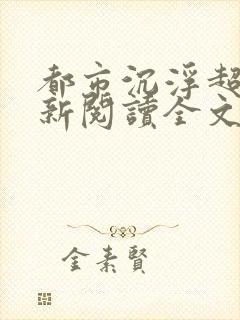 都市沉浮超
新閱讀全文
金素賢